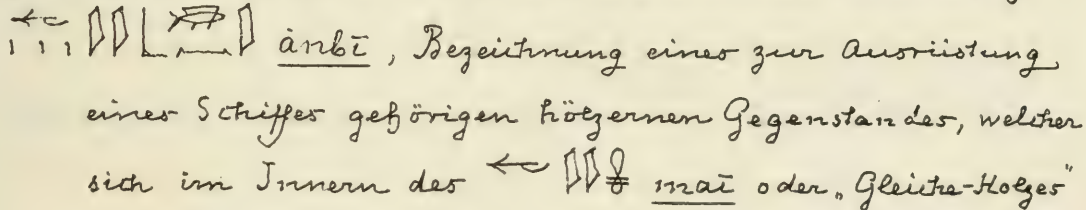 ȧnbī, Bezeichnung eines zur Ausrüstung
eines Schiffes gehörigen hölzernen Gegenstandes, welcher
sich im Innern des maī oder „Gleiche-Holzes"